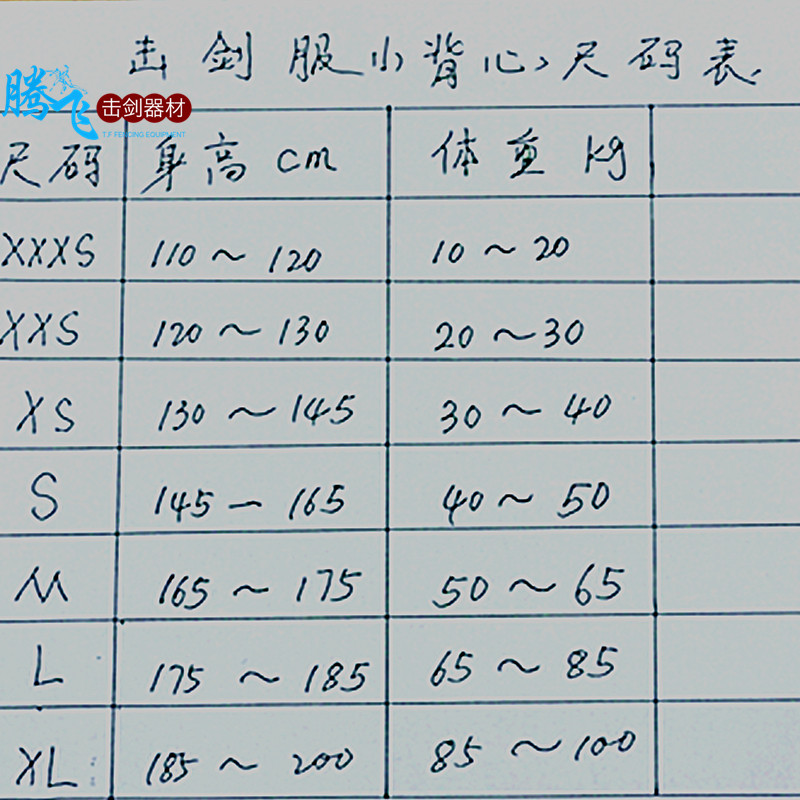 击剑服小背心尺码表
腾飞 击剑器材
TF FENCING EQUIPMENT
尺码 身高 cm 体重 kg
XXXS 110~120 10~20
XXS 120~130 20~30
XS 130~145 30~40
S 145—165 40~50
M 165~175 50~65
L 175~185 65~85
XL 185~200 85~100